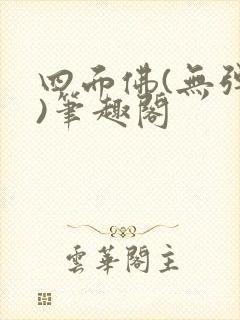 四面佛(無彈
)筆趣閣
雲華閣主